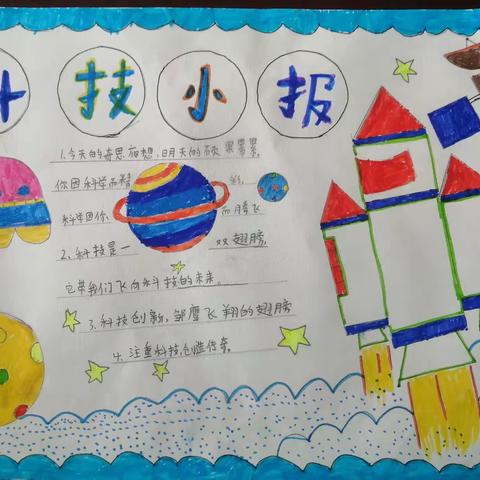 科技小报
1.今天的奇思妙想,明天的硕果累累,
你因科学而精彩,
科学因你,而腾飞
2、科技是一双翅膀,
它带我们飞向科技的未来。
3.科技创新,邹鹰飞翔的翅膀
4.注重科技,创造传奇。